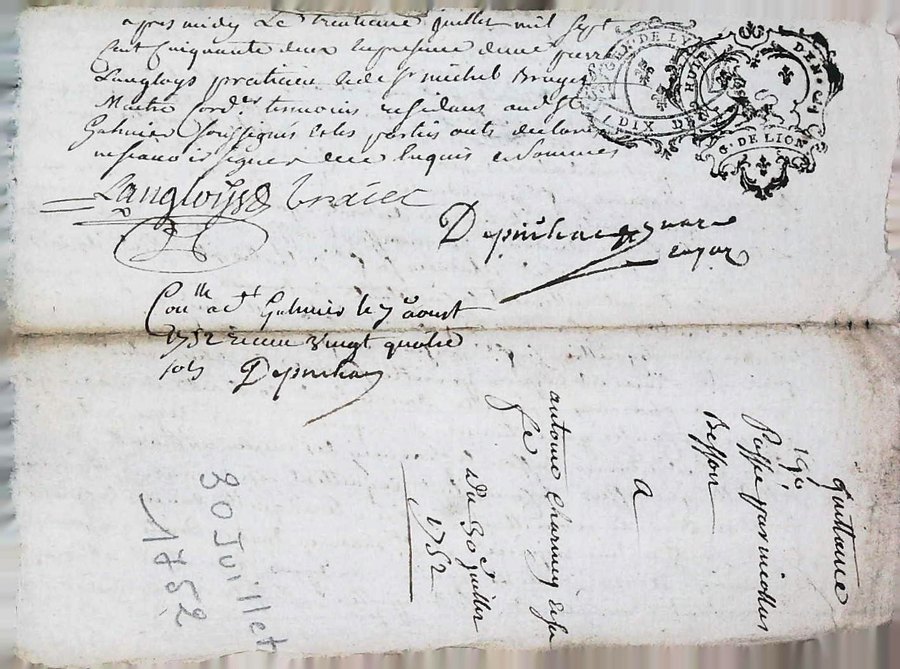 apres midy Le trentieme juillet mil sept
Cent Cinquante deux En presence de me pierre
Langloys praticien & de Sr michel Bruyer
Maitre Cord.er temoins residans aud St
Galmier soussignes & les parties ont declaré
ne scavoir signer de ce Enquis & Sommes
Langloys Bruier
Depinhac
Con.lle a St Galmier le 7 aoust
1752 Recu vingt quatre
sols Depinhac
GEN. DE LY
DIX DEN
G. DE LION
quittance
190
Passée par nicolas
Besson
A
antoine Charvin & sa
fe
Du 30e Juillet
1752
30 Juillet
1752